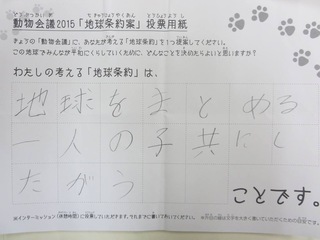 動物会議2015「地球条約案」投票用紙
きょうの「動物会議」に、あなたが考える「地球条約」を1つ提案してください。
この地球でみんなが平和にくらしていくために、どんなことを決めたらよいと思いますか?
わたしの考える「地球条約」は、
地球をまとめる
一人の子共にし
たがう
ことです。
※インターミッション(休憩時間)に投票していただきます。それまでに書いておいてください。